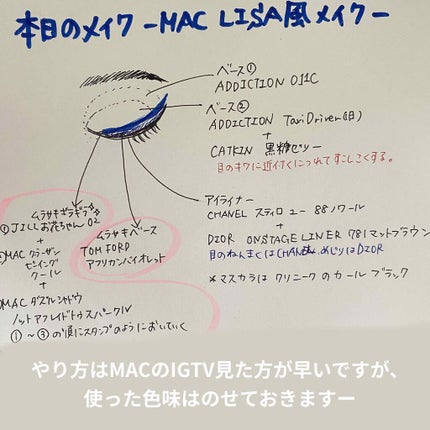 本日のメイク -MAC LISA風メイク-
ベース①
ADDICTION 011C
ベース②
ADDICTION Taxi Driver(旧)
+
CATKIN 黒糖ゼリー
目のキワに近付くにつれてすこしこくする。
アイライナー
CHANEL スティロ ユー 88ノワール
+
DIOR ONSTAGE LINER 781マットブラウン
目のねんまくはCHANEL、めじりはDIOR
*マスカラは クリニークの カール ブラック
ムラサキギラギラ
①JILLお花ちゃん02
+
②MAC クラーザン
ビーイング
クール
+
③MAC ダズルシャドウ
ノット アフレイド トゥ スパークル
①~③の順にスタンプのようにおいていく
ムラサキベース
TOM FORD
アフリカンバイオレット
やり方はMACのIGTV見た方が早いですが、
使った色味はのせておきますー